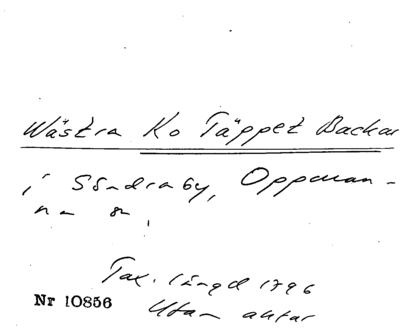 Wästra Ko Täppet Backar
i Söndraby, Oppman-
na sn.
Tax. längd 1796
Nr 10856
Utan